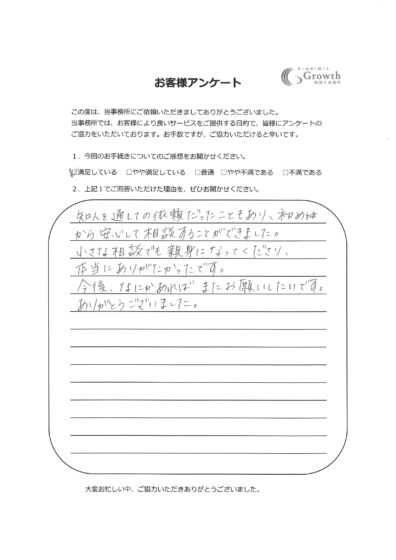 Growth
お客様アンケート
この度は、当事務所にご依頼いただきましてありがとうございました。
当事務所では、お客様により良いサービスをご提供する目的で、皆様にアンケートの
ご協力をいただいております。お手数ですが、ご協力いただけると幸いです。
1．今回のお手続きについてのご感想をお聞かせください。
☑満足している □やや満足している □普通 □やや不満である □不満である
2．上記1でご回答いただけた理由を、ぜひお聞かせください。
知人を通しての依頼だったこともあり、初め
から安心して相談することができました。
小さな相談でも親身になってくださり、
本当にありがたかったです。
今後、なにかあれば またお願いしたいです。
ありがとうございました。
大変お忙しい中、ご協力いただきありがとうございました。